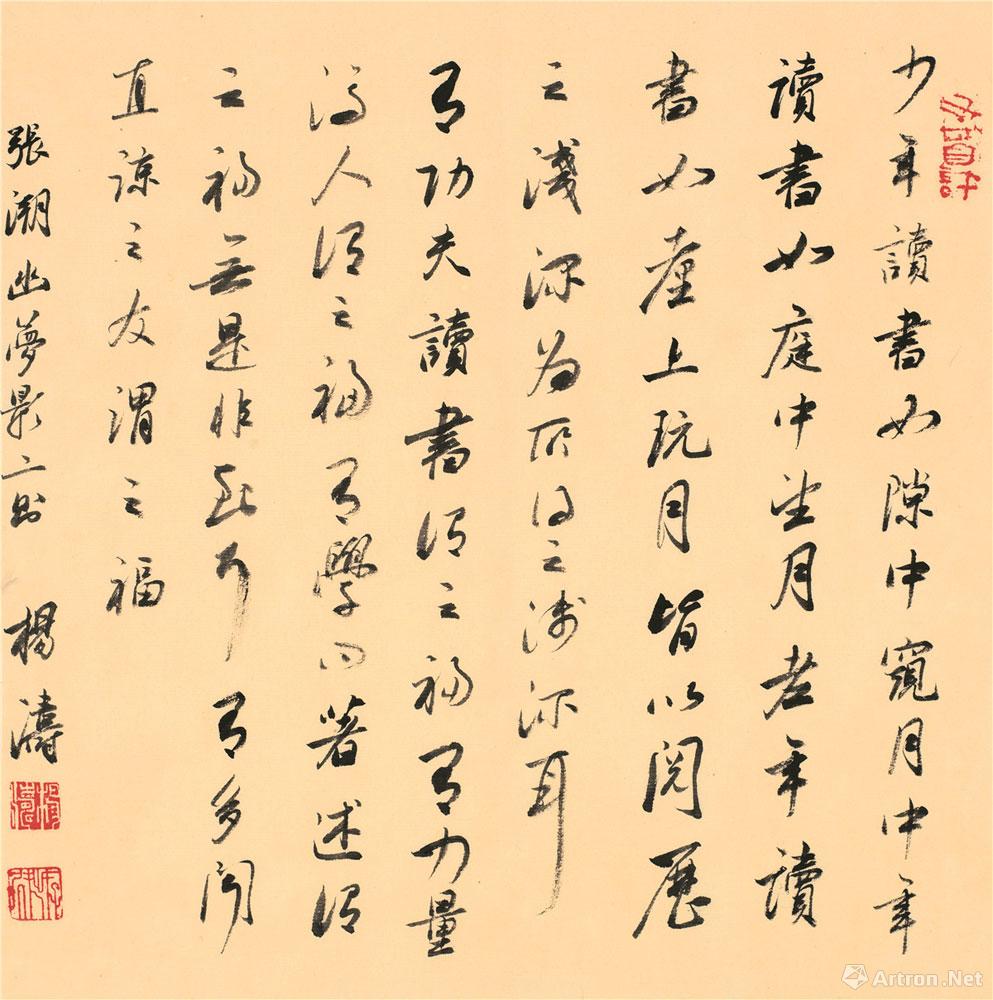 少年讀書如隙中窺月中年
讀書如庭中望月老年讀
書如臺上玩月皆以閱歷
之淺深為所得之淺深耳
有功夫讀書謂之福有力量
濟人謂之福有學問著述謂
之福無是非到耳有多聞
直諒之友謂之福
張潮幽夢影二則 楊濤
Artron.Net